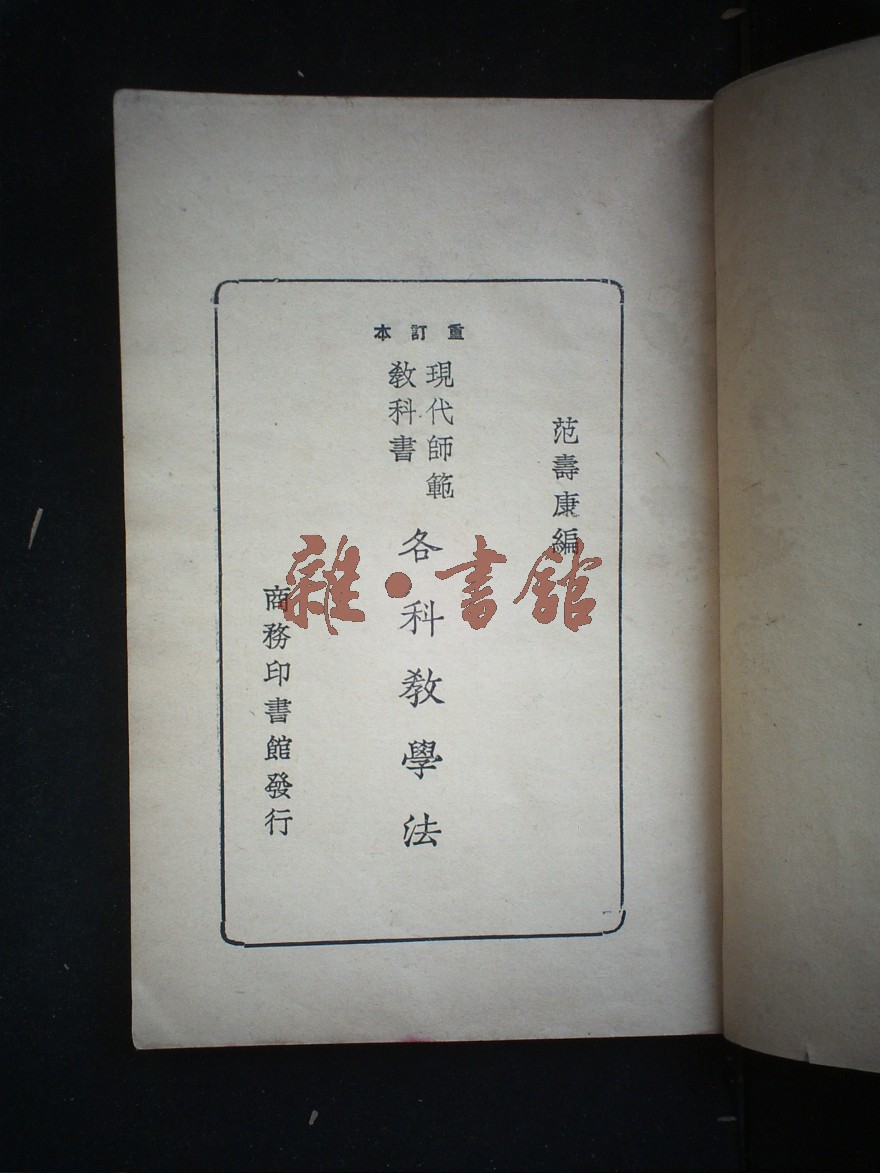 重訂本
范壽康編
現代師範
敎科書
各科敎學法
商務印書館發行
雜·書館